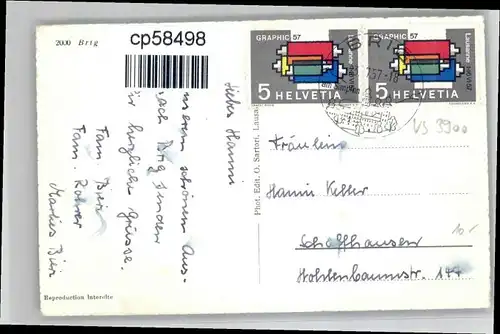 2000 Brig
cp58498
Liebe Hanni
unserem schönen Aus-
nach Brig senden
wir herzliche Grüsse.
Fam. Bier
Fam. Rohrer
Marlies Bier
Reproduction Interdite
Phot. Edit. O. Sartori, Lausanne
GRAPHIC 57
Lausanne
5 HELVETIA
GRAPHIC 57
Lausanne
5 HELVETIA
BRIG
VS 3900
Fräulein
Hanni Keller
Schaffhausen
Hohlenbaumstr. 144
10.-